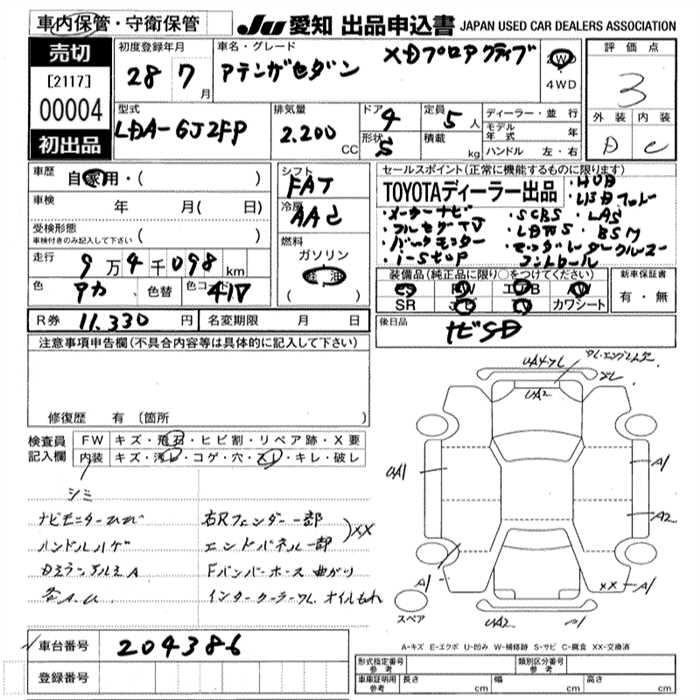 車内保管・守衛保管
JU 愛知 出品申込書 JAPAN USED CAR DEALERS ASSOCIATION
売切
[2117]
00004
初出品
初度登録年月
28 7 月
車名・グレード
XDプロアクティブ
アテンザセダン
2WD
4WD
評価点
3
外装 内装
D C
型式
LDA-GJ2FP
排気量
2.200 CC
ドア 4
形状 S
定員 5 人
積載 kg
ディーラー・並行
モデル年式 年
ハンドル 左・右
車歴 自家用・( )
車検 年 月( 日)
受検形態
車検付きのみ記入して下さい ( )
走行 9万4千098km
色 アカ 色替 色コード 41V
シフト FAT
冷房 AAC
燃料
ガソリン
( )
セールスポイント(正常に機能するものに限ります)
TOYOTAディーラー出品
・HUD
・オーナーナビ ・SCBS ・LAS
・フルセグTV ・LDWS ・BSM
・バックモニター
・i-stop コントロール
装備品(純正品に限り○をつけてください)
SR カワシート
新車保証書
有・無
R券 11,330 円 名変期限 月 日
後日品 ナビSD
注意事項申告欄(不具合内容等は具体的に記入して下さい)
修復歴 有(箇所 )
検査員 FW キズ・飛石・ヒビ割・リペア跡・X要
記入欄 内装 キズ・汚レ・コゲ・穴・スレ・キレ・破レ
シミ
ナビモニターひび 右Rフェンダー一部
ハンドルハゲ エンドパネル一部 )XX
各A.U. インタークーラー オイルもれ
Fバンパーホース曲がり
UA2
UA1
A1
A2
A1
XX A1
UA2
スペア
A-キズ E-エクボ U-凹み W-補修跡 S-サビ C-腐食 XX-交換済
車台番号 204386
登録番号
形式指定番号 参考 類別区分番号 参考
車庫証明用 参考 長さ cm 幅 cm 高さ cm